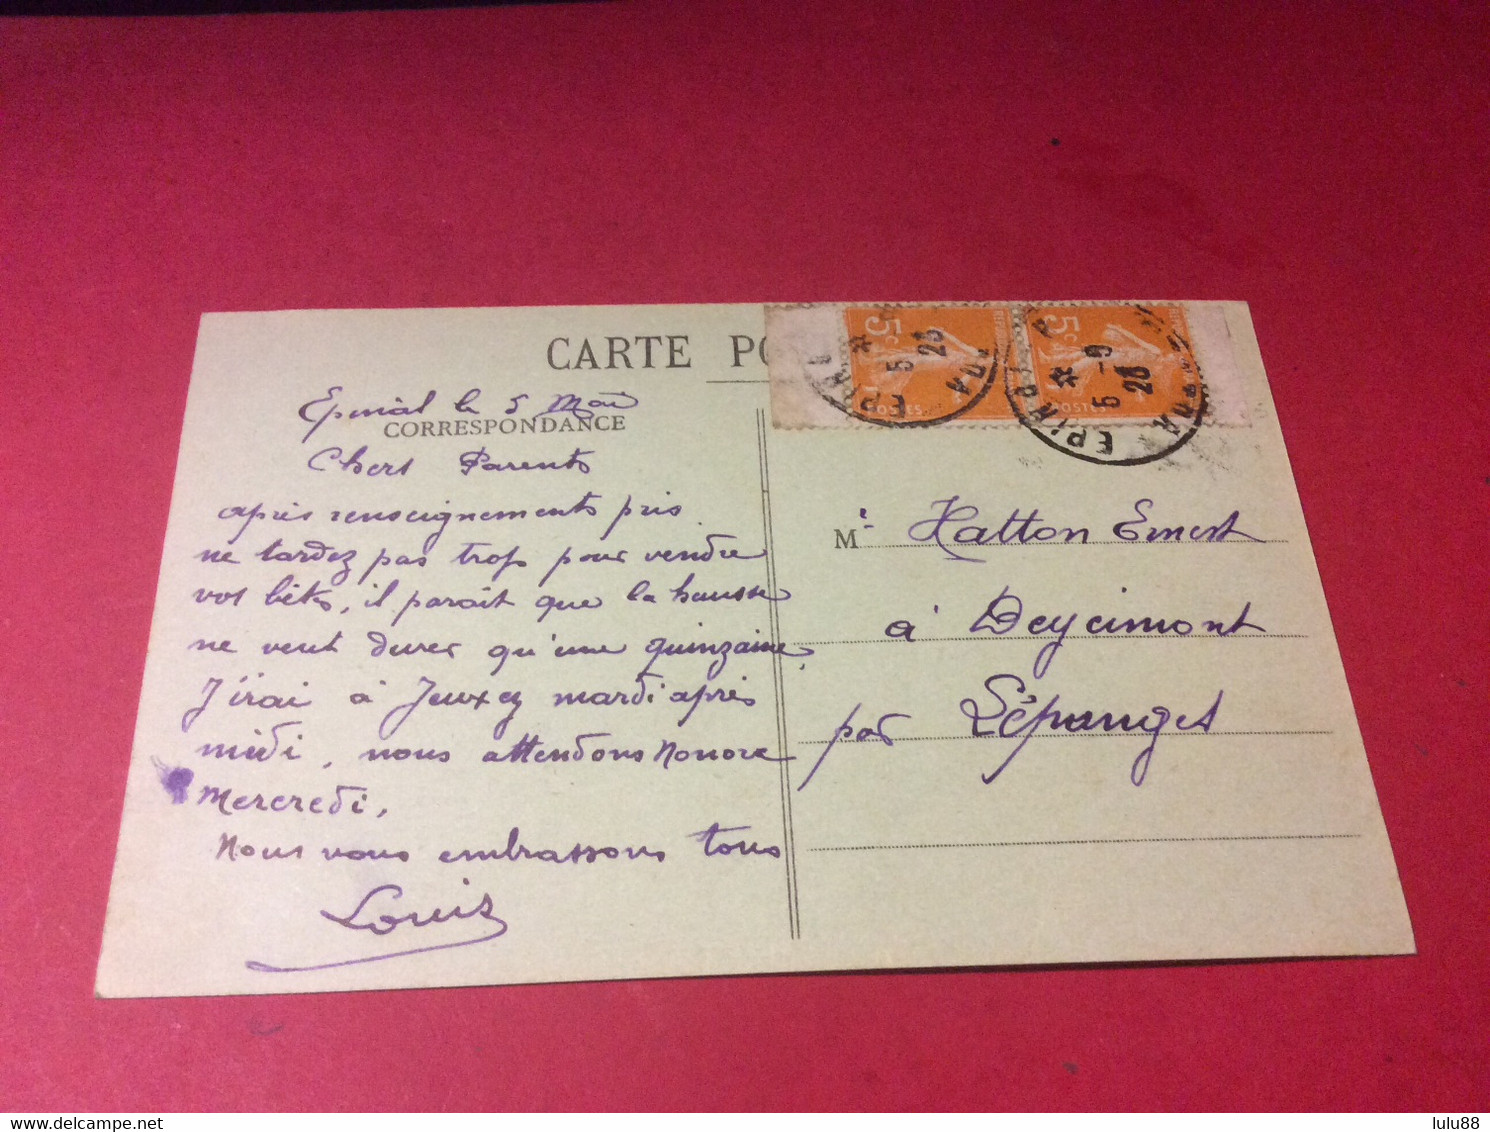 CARTE PO
Epinal le 5 Mai
CORRESPONDANCE
Chers Parents
après renseignements pris
ne tardez pas trop pour vendre
vos bêtes, il parait que la hausse
ne veut durer qu'une quinzaine,
J'irai à Jeuxey mardi après
midi, nous attendons Honoré
Mercredi,
Nous vous embrassons tous
Louis
M Hatton Ernest
à Deycimont
par Lépanges
5c
POSTES
EPINAL
5
23
5c
POSTES
EPINAL
5-9
23
lulu88